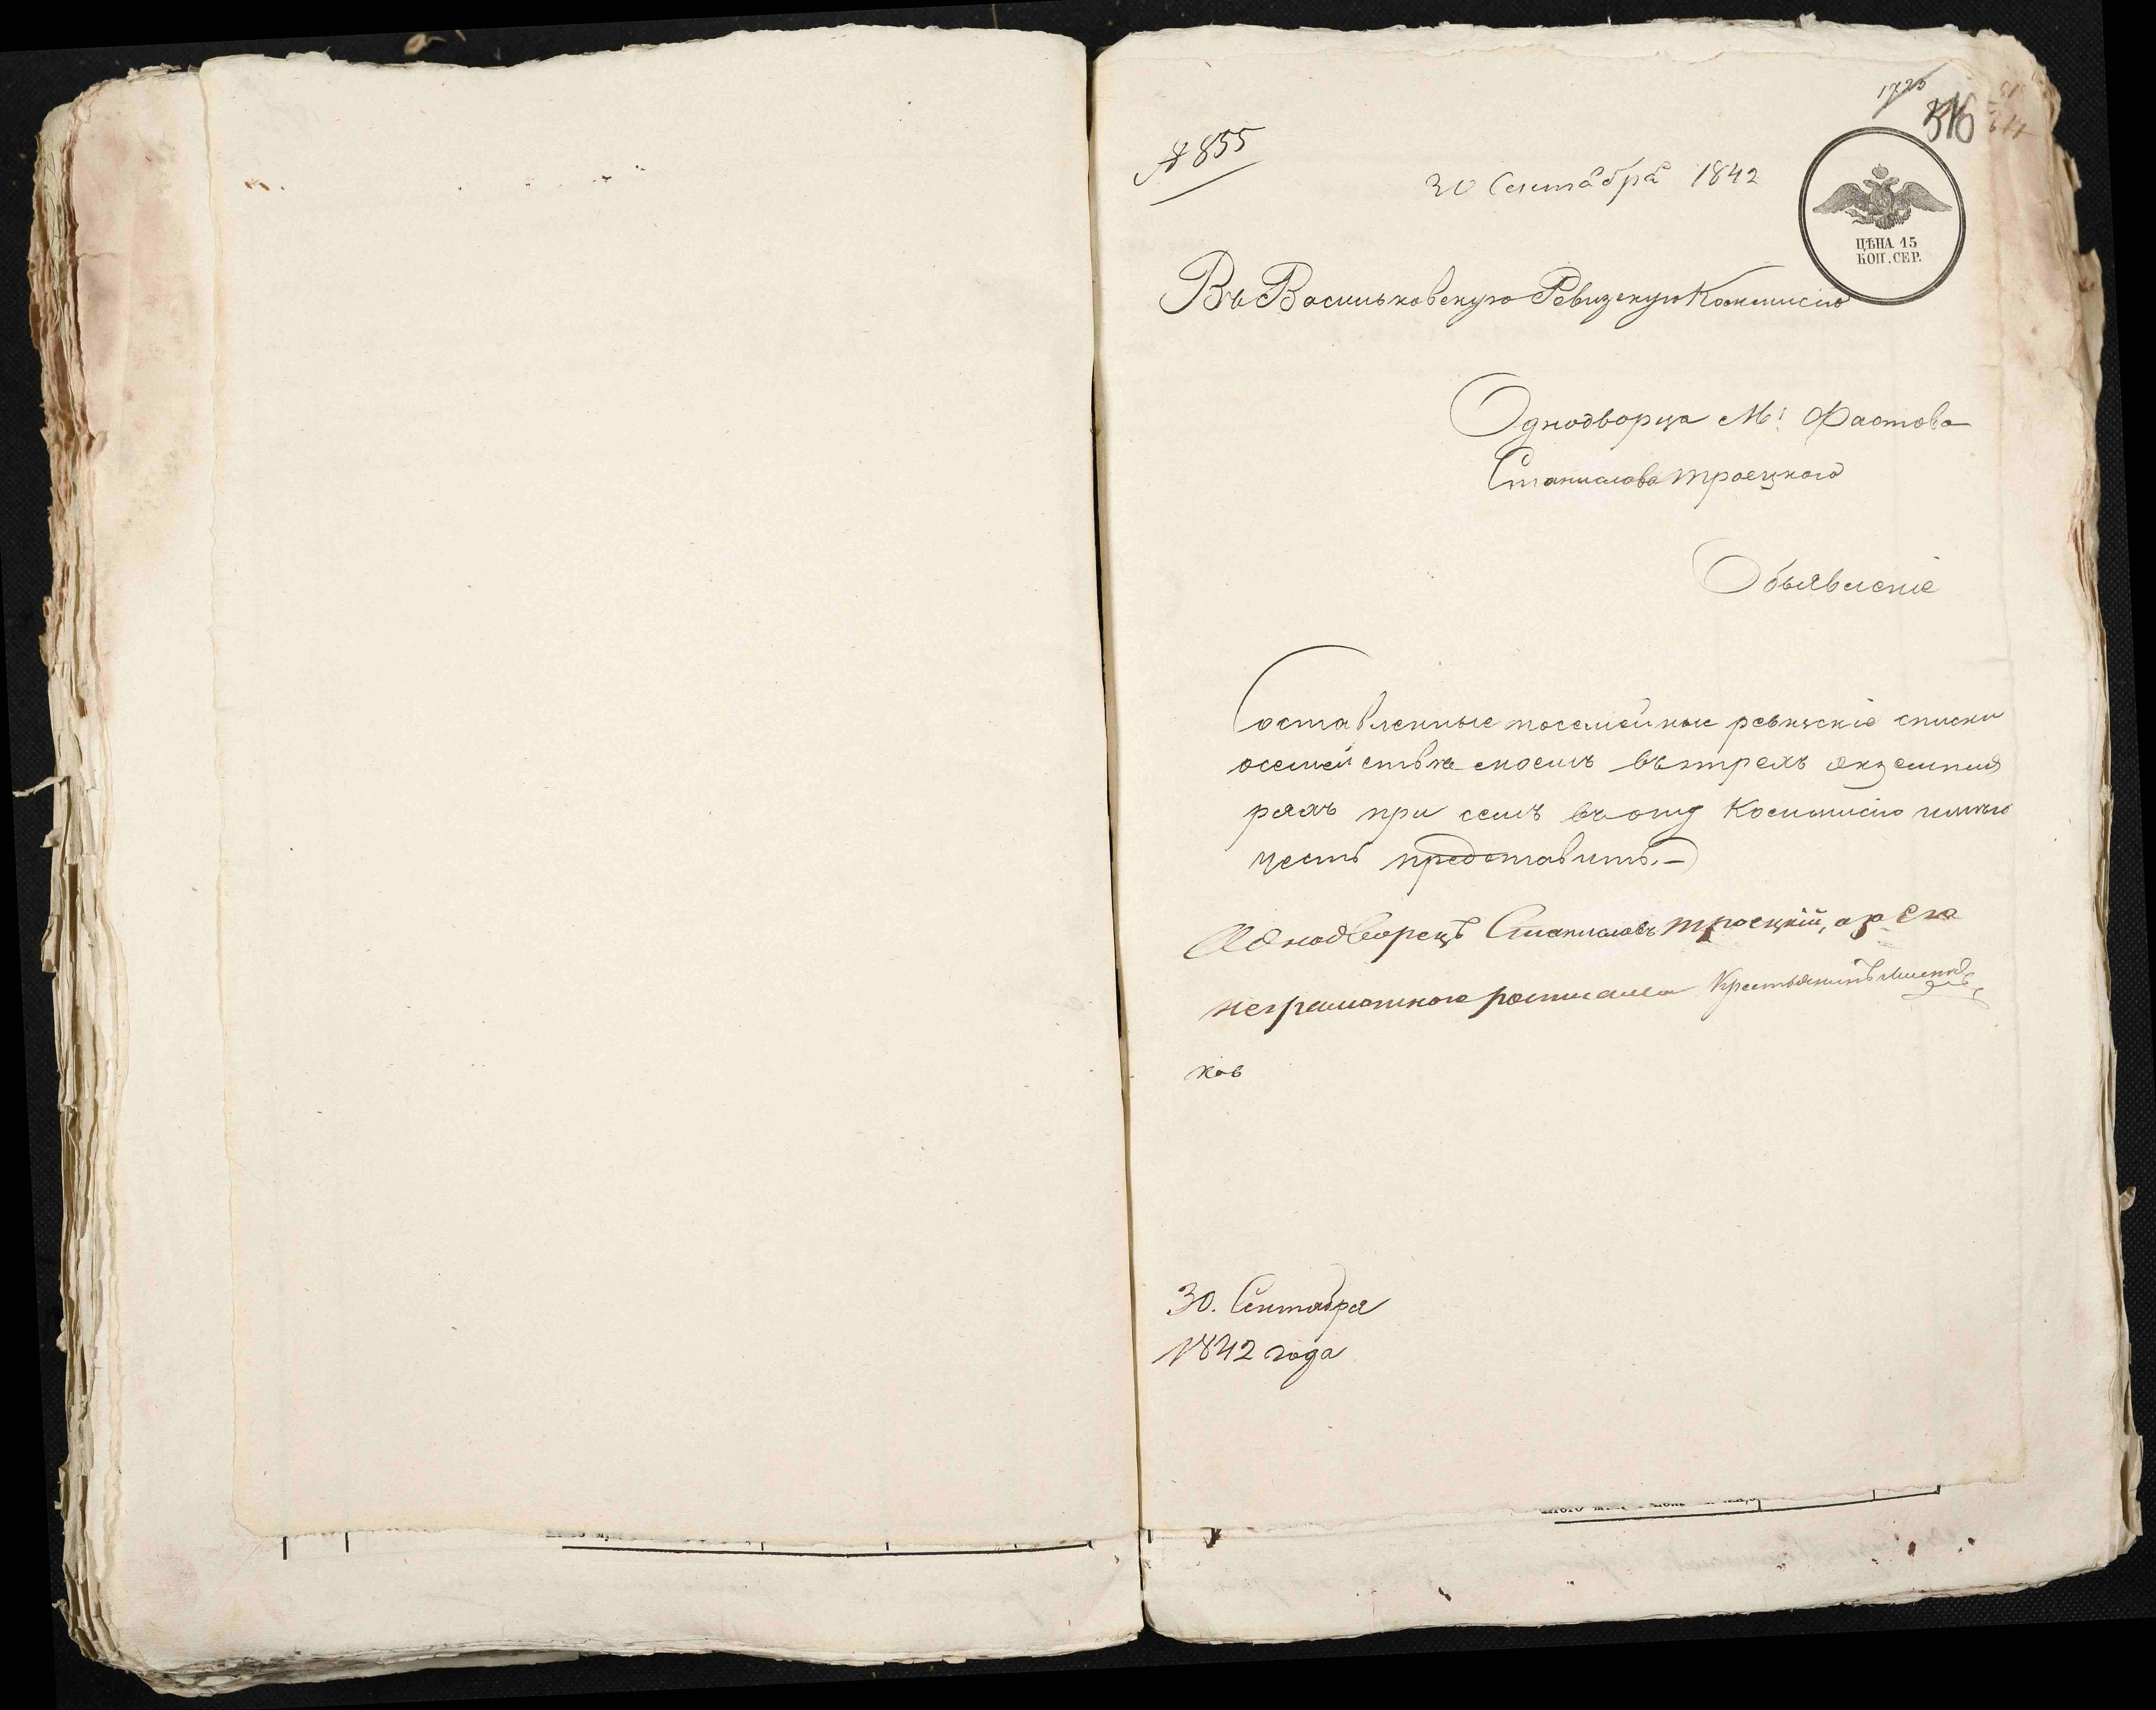 1723
516
№ 855
30 Сентября 1842
ЦѢНА 15
КОП. СЕР.
Въ Васильковскую Ревизскую Коммисію
Однодворца М: Фастова
Станислава Троецкого
Объявленіе
Составленные посемейные ревизскіе списки
осемействе моемъ въ трехъ экземпля
рахъ при семъ въ оную Коммисію имею
честь представить.
Однодворецъ Станиславъ Троецкій, а за Его
неграмотного росписался Крестьянинъ
ков
30. Сентября
1842 года